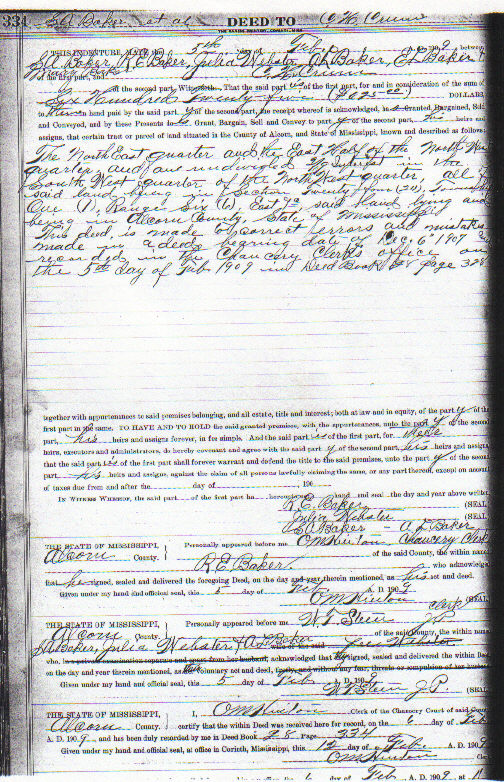 334 S.A. Baker et al DEED TO
THIS INDENTURE, MADE the 5th day of Feb 1909, between
S.A. Baker, R.E. Baker, Julia Webster, A.L. Baker,
of the first part, and
of the second part, Witnesseth, That the said part of the first part, for and in consideration of the sum of
Six Hundred Twenty five DOLLARS,
to hand paid by the said part of the second part, the receipt whereof is acknowledged, Granted, Bargained, Sold
and Conveyed, and by these Presents do Grant, Bargain, Sell and Convey to part y of the second part, his heirs and
assigns, that certain tract or parcel of land situated in the County of Alcorn, and State of Mississippi, known and described as follows:
The North East quarter and the East Half of the North West
quarter, and one undivided interest in the
South West quarter of the North West quarter, all of
said land being in Section Twenty four (24), Township
One (1), Range Six (6), East, said land lying and
being in Alcorn County, State of Mississippi.
This deed is made to correct errors and mistakes
made in a deed bearing date of Dec. 6th 1907 and
recorded in the Chancery Clerk's office on
the 5th day of Feb. 1909 in Deed Book page 328
together with appurtenances to said premises belonging, and all estate, title and interest; both at law and in equity, of the part y of the
first part in the same. TO HAVE AND TO HOLD the said granted premises, with the appurtenances, unto the part y of the second
part, his heirs and assigns forever, in fee simple. And the said part of the first part, for
heirs, executors and administrators, do hereby covenant and agree with the said part y of the second part, his heirs and assigns
that the said part of the first part shall forever warrant and defend the title to the said premises, unto the part y of the second
part, his heirs and assigns, against the claim of all persons lawfully claiming the same, or any part thereof, except on account
of taxes due from and after the day of 190
IN WITNESS WHEREOF, the said part of the first part ha hereunto hand and seal the day and year above written.
R.E. Baker (SEAL
Julia Webster (SEAL
S.A. Baker A.L. Baker
THE STATE OF MISSISSIPPI, Personally appeared before me O M Hinton Chancery Clerk
Alcorn County. of the said County, the within named
R.E. Baker who acknowledged
that he signed, sealed and delivered the foregoing Deed, on the day and year therein mentioned, as his act and deed.
Given under my hand and official seal, this 5 day of Feb A. D. 1909
O M Hinton Clerk (SEAL)
THE STATE OF MISSISSIPPI, Personally appeared before me J P
Alcorn County. of the said County, the within named
S.A. Baker, Julia Webster, & A.L. Baker
who, in a private examination separate and apart from her husband, acknowledged that signed, sealed and delivered the within Deed
on the day and year therein mentioned, as voluntary act and deed, freely, and without any fear, threats or compulsion of her husband
Given under my hand and official seal, this 5 day of Feb A. D. 1909
J.P. (SEAL
THE STATE OF MISSISSIPPI, I, O M Hinton Clerk of the Chancery Court of said County
Alcorn County. certify that the within Deed was received here for record, on the 6 day of Feb
A. D. 1909, and has been duly recorded by me in Deed Book 28 Page 334
Given under my hand and official seal, at office in Corinth, Mississippi, this 12 day of Feb.
O M Hinton
Clerk